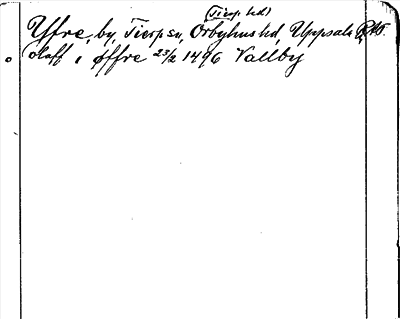 (Tierp hd)
Yfre, by, Tierp sn, Örbyhus hd, Uppsala
Olaff i Øffre 23/2 1496 Vallby